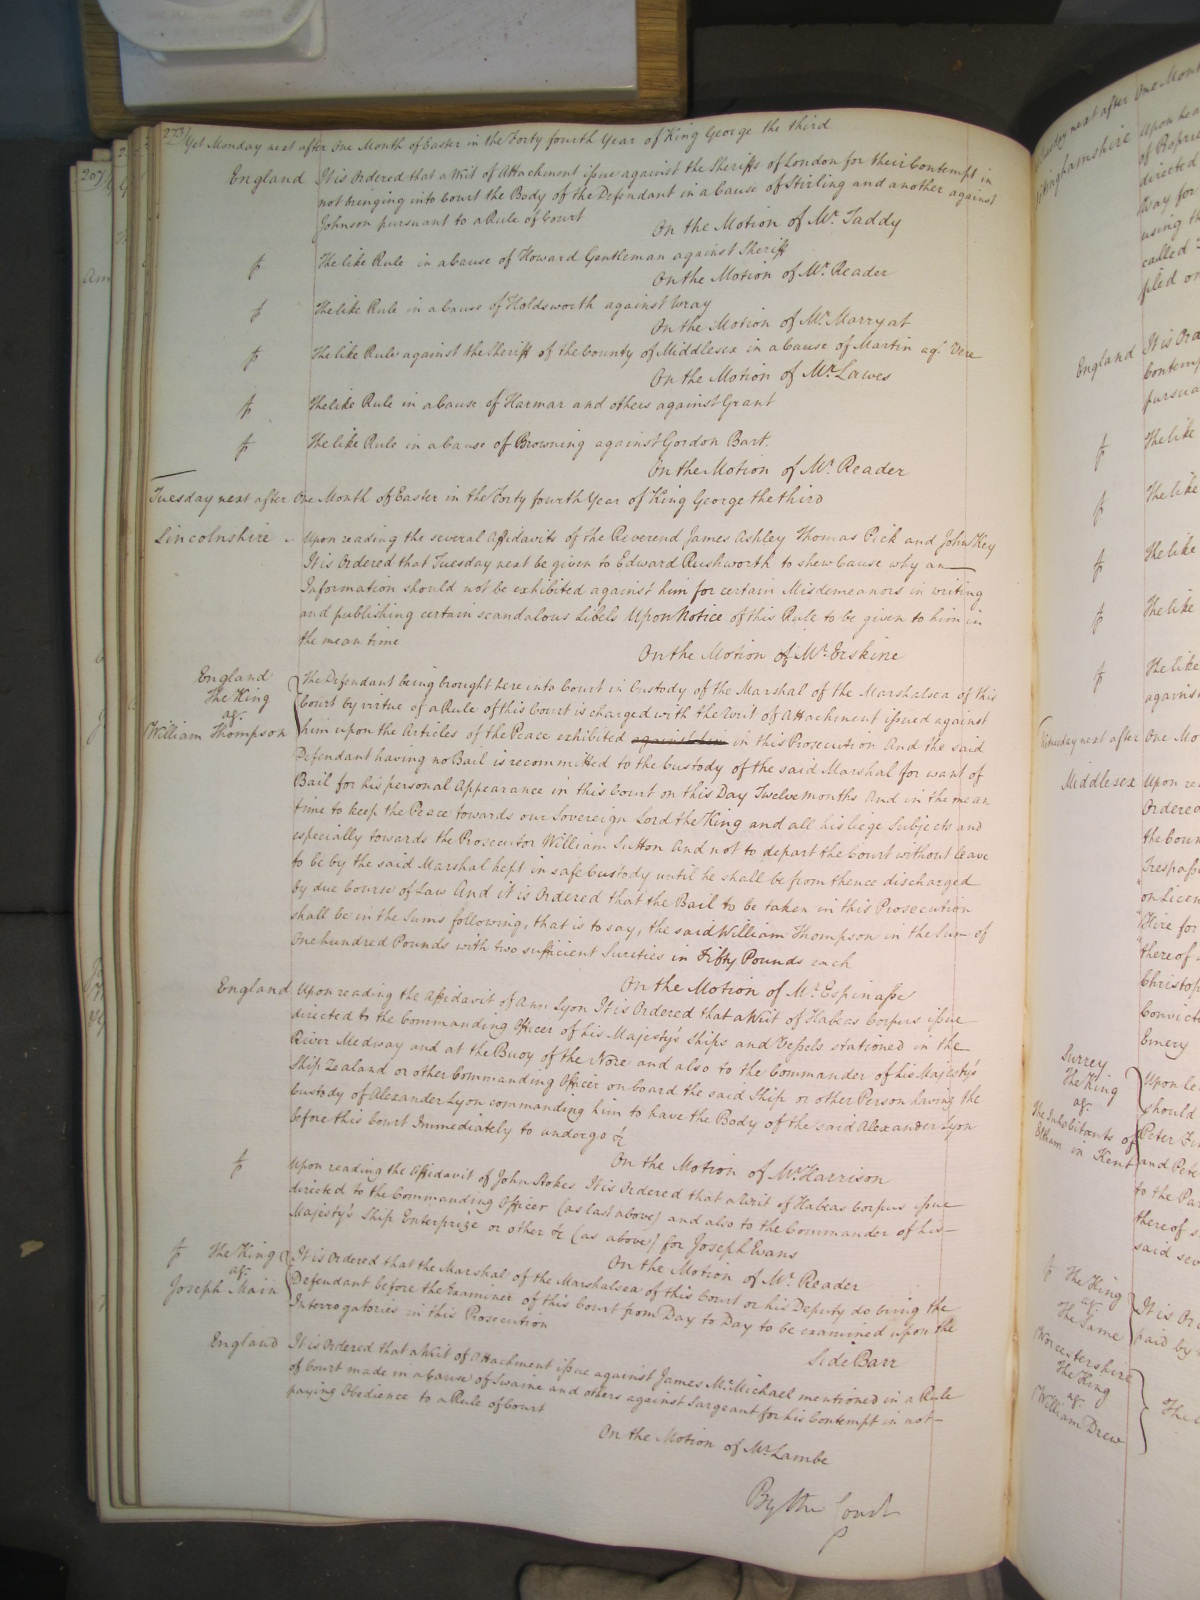 273/ Yet Monday next after One Month of Easter in the Forty fourth Year of King George the third
England It is Ordered that a Writ of Attachment issue against the Sheriffs of London for their Contempt in
not bringing into Court the Body of the Defendant in a Cause of Stirling and another against
Johnson pursuant to a Rule of Court
On the Motion of Mr. Taddy
The like Rule in a Cause of Howard Gentleman against Sheriff
On the Motion of Mr. Reader
The like Rule in a Cause of Holdsworth against Wray
On the Motion of Mr. Marryat
The like Rule against the Sheriff of the County of Middlesex in a Cause of Martin agt. Vere
On the Motion of Mr. Lawes
The like Rule in a Cause of Harmar and others against Grant
The like Rule in a Cause of Browning against Gordon Bart.
On the Motion of Mr. Reader
Tuesday next after One Month of Easter in the Forty fourth Year of King George the third
Lincolnshire Upon reading the several Affidavits of the Reverend James Ashley Thomas Pick and John Key
It is Ordered that Tuesday next be given to Edward Rushworth to shew Cause why an
Information should not be exhibited against him for certain Misdemeanors in writing
and publishing certain scandalous Libels Upon Notice of this Rule to be given to him in
the mean time
On the Motion of Mr. Erskine
England
The King
agt.
William Thompson
The Defendant being brought here into Court in Custody of the Marshal of the Marshalsea of this
Court by virtue of a Rule of this Court is charged with the Writ of Attachment issued against
him upon the Articles of the Peace exhibited against him in this Prosecution And the said
Defendant having no Bail is recommitted to the Custody of the said Marshal for want of
Bail for his personal Appearance in this Court on this Day Twelve months And in the mean
time to keep the Peace towards our Sovereign Lord the King and all his liege Subjects and
especially towards the Prosecutor William Sutton And not to depart the Court without leave
to be by the said Marshal kept in safe Custody until he shall be from thence discharged
by due Course of Law And it is Ordered that the Bail to be taken in this Prosecution
shall be in the Sums following, that is to say, the said William Thompson in the Sum of
One hundred Pounds with two sufficient Sureties in Fifty Pounds each
On the Motion of Mr. Espinasse
England Upon reading the Affidavit of Ann Lyon It is Ordered that a Writ of Habeas Corpus issue
directed to the Commanding Officer of his Majesty's Ships and Vessels stationed in the
River Medway and at the Buoy of the Nore and also to the Commander of his Majesty's
Ship Zealand or other Commanding Officer on board the said Ship or other Person having the
Custody of Alexander Lyon commanding him to have the Body of the said Alexander Lyon
before this Court Immediately to undergo &c
On the Motion of Mr. Harrison
Upon reading the Affidavit of John Stokes It is Ordered that a Writ of Habeas Corpus issue
directed to the Commanding Officer (as last above) and also to the Commander of his
Majesty's Ship Enterprize or other &c (as above) for Joseph Evans
On the Motion of Mr. Reader
The King
agt.
Joseph Main
It is Ordered that the Marshal of the Marshalsea of this Court or his Deputy do bring the
Defendant before the Examiner of this Court from Day to Day to be examined upon the
Interrogatories in this Prosecution
Side Barr
England It is Ordered that a Writ of Attachment issue against James McMichael mentioned in a Rule
of Court made in a Cause of Swaine and others against Sargeant for his Contempt in not
paying Obedience to a Rule of Court
On the Motion of Mr. Lambe
By the Court
207
next after One Month
Upon
of
directed
Way for
using
called
pled
England It is
Contemp
pursua
The like
The like
The like
The like
The like
against
next after One Mo
Middlesex Upon rea
Ordered
the Coun
Trespass
Hire for
thereof
Christop
Convict
Emery
Surrey
The King
agt.
The Inhabitants of
Eltham in Kent
Upon
should
Peter
and Pete
to the Par
thereof
said
The King
agt.
The Same
It is Ord
paid by
Worcestershire
The King
agt.
William Drew
The